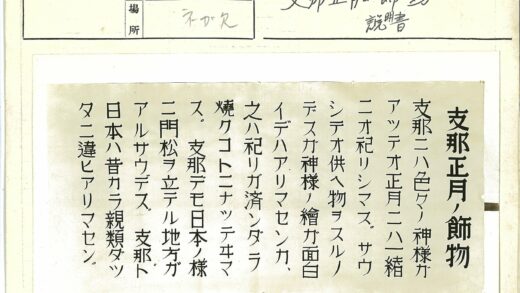 場所
ネガ欠
説明書
支那正月ノ飾物
支那ニハ色々ノ神様ガ
アッテオ正月ニハ一緒
ニオ祀リシマス。サウ
シテオ供ヘ物ヲスルノ
デスガ神様ノ繪ガ面白
イデハアリマセンカ、
之ハ祀リガ済ンダラ
燒クコトニナッテヰマ
ス。支那デモ日本ノ様
ニ門松ヲ立テル地方ガ
アルサウデス。支那ト
日本ハ昔カラ親類ダッ
タニ違ヒアリマセン。